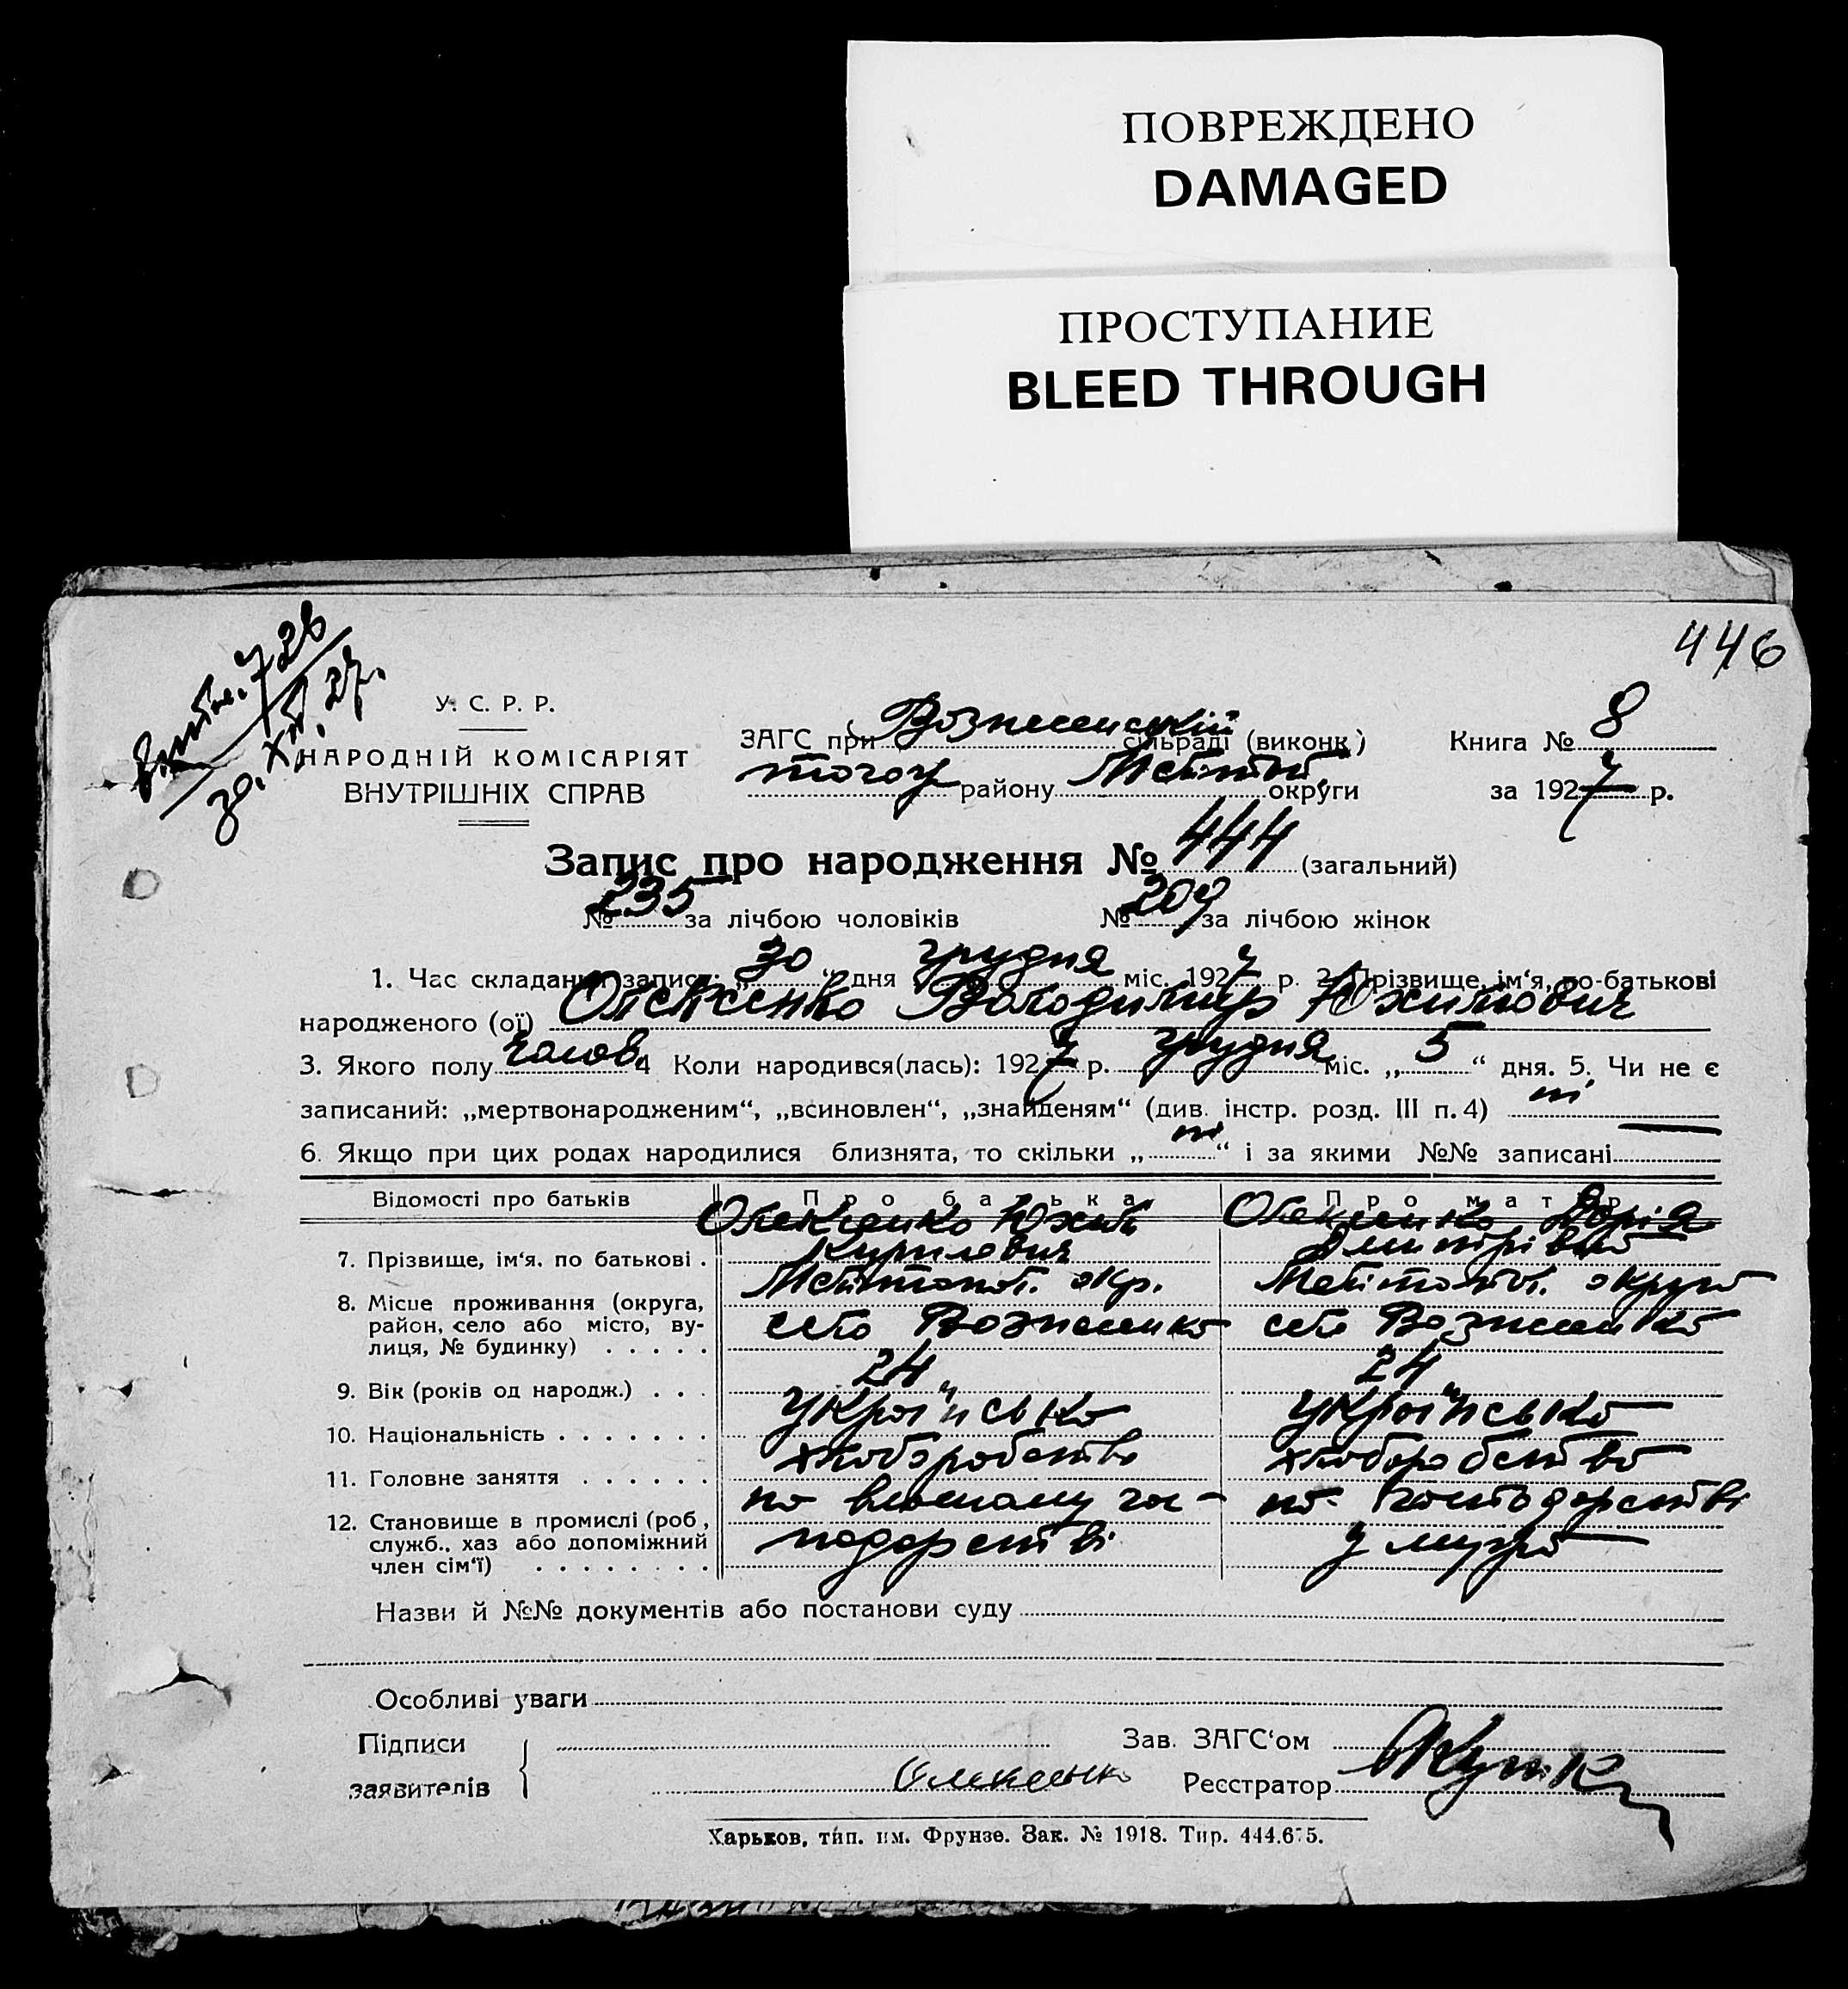 ПОВРЕЖДЕНО
DAMAGED
ПРОСТУПАНИЕ
BLEED THROUGH
446
726
30. XII. 27.
У. С. Р. Р.
НАРОДНІЙ КОМІСАРІЯТ
ВНУТРІШНІХ СПРАВ
ЗАГС при Вознесенській сільраді (виконк.)
району округи
Книга № 8
за 1927 р.
Запис про народження № 444 (загальний)
№ 235 за лічбою чоловіків № 209 за лічбою жінок
1. Час складання запису: „30“ дня грудня міс. 1927 р. 2. Прізвище, ім‘я, по-батькові
народженого (ої) Олексенко Володимир Юхимович
3. Якого полу чолов. 4 Коли народився(лась): 1927 р. грудня міс. „5“ дня. 5. Чи не є
записаний: „мертвонародженим“, „всиновлен“, „знайденям“ (див. інстр. розд. III п. 4) ні
6. Якщо при цих родах народилися близнята, то скільки „ні“ і за якими №№ записані
Відомості про батьків Про батька Про матір
7. Прізвище, ім‘я, по батькові . Олексенко Юхим Кирилович Олексенко Дарія Дмитрівна
8. Місце проживання (округа, район, село або місто, вулиця, № будинку) . . . . . Мелітопол. окр. село Вознесенка Мелітопол. округа село Вознесенка
9. Вік (років од народж.) . . . 24 24
10. Національність . . . . . . . українська українська
11. Головне заняття . . . . . . хлоборобство хлоборобство
12. Становище в промислі (роб., служб., хаз або допоміжний член сім‘ї) . . . . . . . . по власному господарстві по господарстві у мужа
Назви й №№ документів або постанови суду
Особливі уваги
Підписи
заявителів
Олексенко
Зав. ЗАГС‘ом
Реєстратор
Харьков, тип. им. Фрунзе. Зак. № 1918. Тир. 444.675.